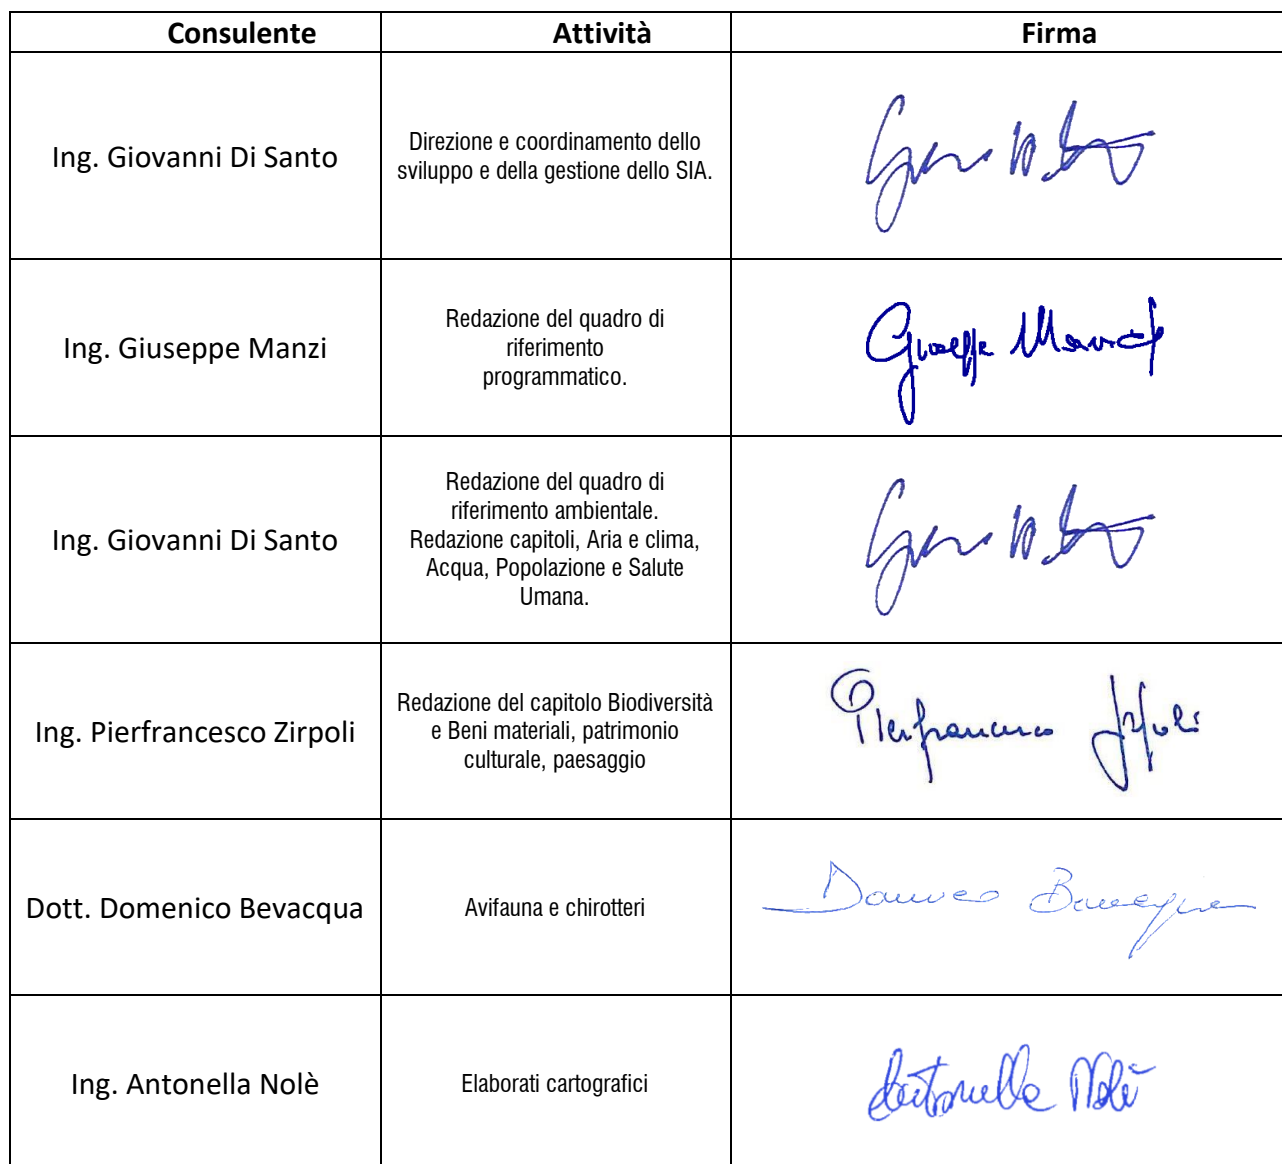 Consulente Attività Firma
Ing. Giovanni Di Santo
Direzione e coordinamento dello
sviluppo e della gestione dello SIA.
Ing. Giuseppe Manzi
Redazione del quadro di
riferimento
programmatico.
Giuseppe Manzi
Ing. Giovanni Di Santo
Redazione del quadro di
riferimento ambientale.
Redazione capitoli, Aria e clima,
Acqua, Popolazione e Salute
Umana.
Ing. Pierfrancesco Zirpoli
Redazione del capitolo Biodiversità
e Beni materiali, patrimonio
culturale, paesaggio
Pierfrancesco Zirpoli
Dott. Domenico Bevacqua
Avifauna e chirotteri
Domenico Bevacqua
Ing. Antonella Nolè
Elaborati cartografici
Antonella Nolè